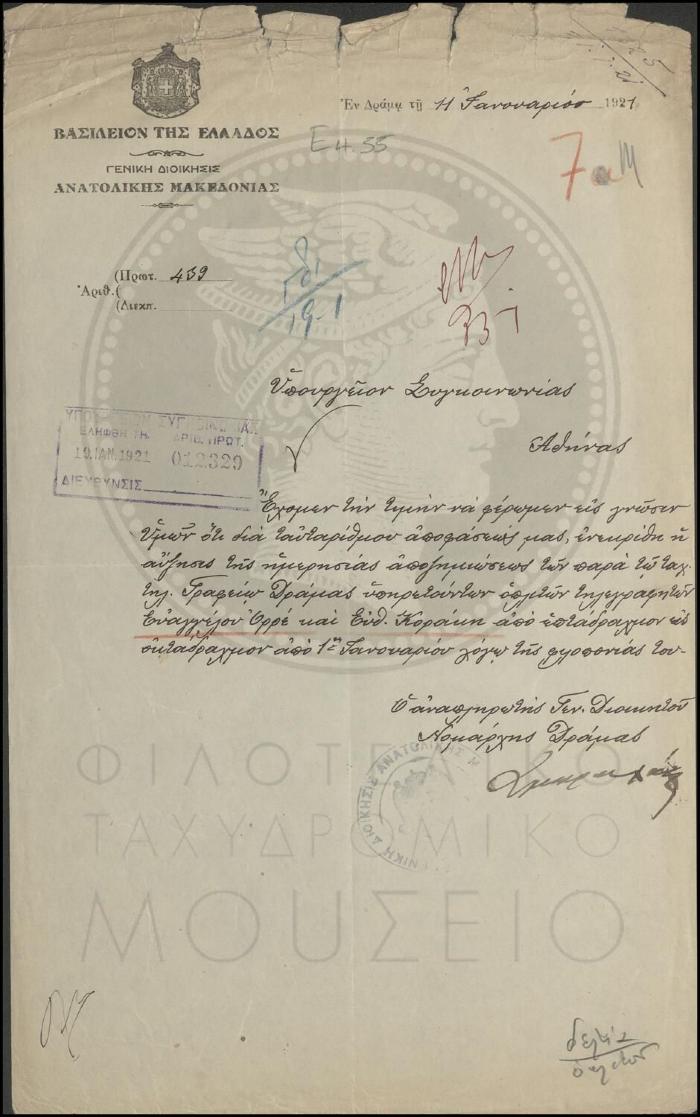 Ἐν Δράμᾳ τῇ 11 Ἰανουαρίου 1921
ΒΑΣΙΛΕΙΟΝ ΤΗΣ ΕΛΛΑΔΟΣ
ΓΕΝΙΚΗ ΔΙΟΙΚΗΣΙΣ
ΑΝΑΤΟΛΙΚΗΣ ΜΑΚΕΔΟΝΙΑΣ
7
(Πρωτ. 439
Ἀριθ. (
(Διεκπ.
19-1
Ὑπουργεῖον Συγκοινωνίας
Ἀθήνας
ΥΠΟΥΡΓΕΙΟΝ ΣΥΓΚΟΙΝΩΝΙΑΣ
ΕΛΗΦΘΗ ΤΗ ΑΡΙΘ. ΠΡΩΤ.
19 ΙΑΝ. 1921 012329
ΔΙΕΥΘΥΝΣΙΣ
Ἔχομεν τὴν τιμὴν νὰ φέρωμεν εἰς γνῶσιν
Ὑμῶν ὅτι διὰ ταὐταρίθμου ἀποφάσεώς μας, ἐνεκρίθη ἡ
αὔξησις τῆς ἡμερησίας ἀποζημιώσεως τῶν παρὰ τῷ ταχ.
τηλ. Γραφείῳ Δράμας ὑπηρετούντων ὁπλιτῶν τηλεγραφητῶν
Εὐαγγέλου Ὀρφὲ καὶ Εὐθ. Κοράκη ἀπὸ ἑπτάδραχμον εἰς
ὀκτάδραχμον ἀπὸ 1ης Ἰανουαρίου λόγῳ τῆς φιλοπονίας των-
Ὁ ἀναπληρωτὴς Γεν. Διοικητοῦ
Νομάρχης Δράμας
ΓΕΝΙΚΗ ΔΙΟΙΚΗΣΙΣ ΑΝΑΤΟΛΙΚΗΣ Μ
ΦΙΛΟΤΕΛΙΚΟ
ΤΑΧΥΔΡΟΜΙΚΟ
ΜΟΥΣΕΙΟ